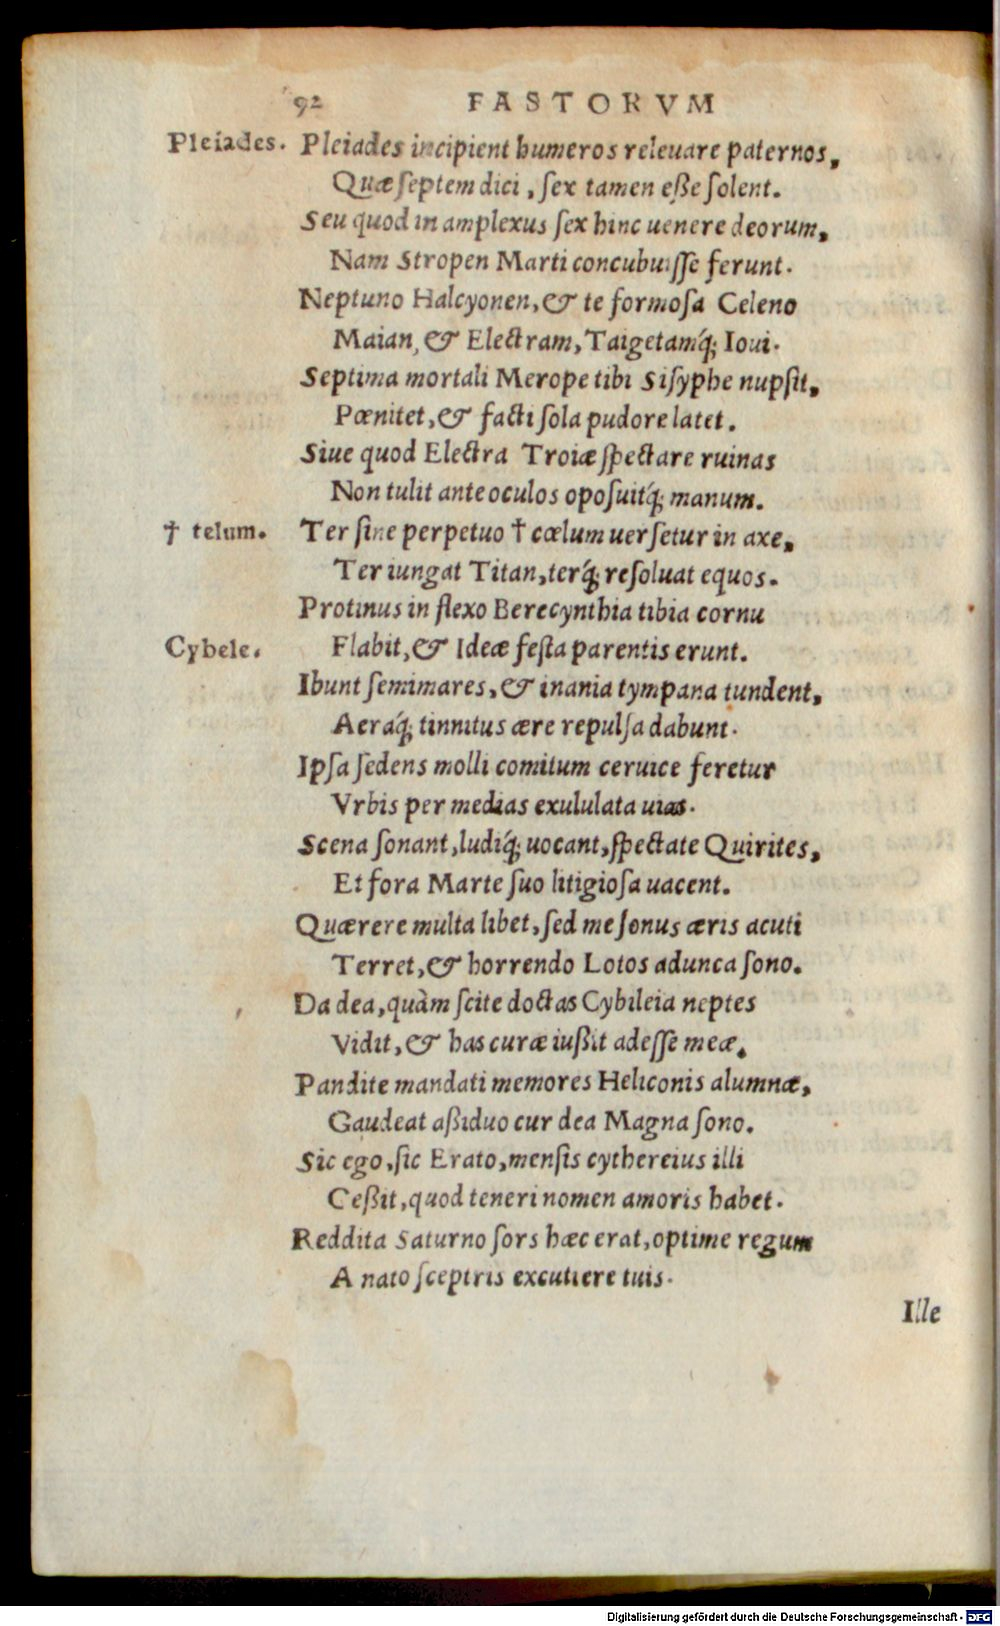 92 FASTORVM
Pleíades. Pleiades incipient humeros releuare paternos,
Quæ ſeptem dici, ſex tamen eſſe ſolent.
Seu quod in amplexus ſex hinc uenere deorum,
Nam Stropen Marti concubuiſſe ferunt.
Neptuno Halcyonen, & te formoſa Celeno
Maian, & Electram, Taigetamq́; Ioui.
Septima mortali Merope tibi Siſyphe nupſit,
Pœnitet, & facti ſola pudore latet.
Siue quod Electra Troiæ ſpectare ruinas
Non tulit ante oculos opoſuitq́; manum.
† telum. Ter ſine perpetuo † cœlum uerſetur in axe,
Ter iungat Titan, terq́; reſoluat equos.
Protinus in flexo Berecynthia tibia cornu
Cybele. Flabit, & Ideæ feſta parentis erunt.
Ibunt ſemimares, & inania tympana tundent,
Aeraq́; tinnitus ære repulſa dabunt.
Ipſa ſedens molli comitum ceruice feretur
Vrbis per medias exululata uias.
Scena ſonant, ludiq́; uocant, ſpectate Quirites,
Et fora Marte ſuo litigioſa uacent.
Quærere multa libet, ſed me ſonus æris acuti
Terret, & horrendo Lotos adunca ſono.
Da dea, quàm ſcite doctas Cybileia neptes
Vidit, & has curæ iußit adeſſe meæ.
Pandite mandati memores Heliconis alumnæ,
Gaudeat aßiduo cur dea Magna ſono.
Sic ego, ſic Erato, menſis cythereius illi
Ceßit, quod teneri nomen amoris habet.
Reddita Saturno ſors hæc erat, optime regum
A nato ſceptris excutiere tuis.
Ille
Digitalisierung gefördert durch die Deutsche Forschungsgemeinschaft - DFG